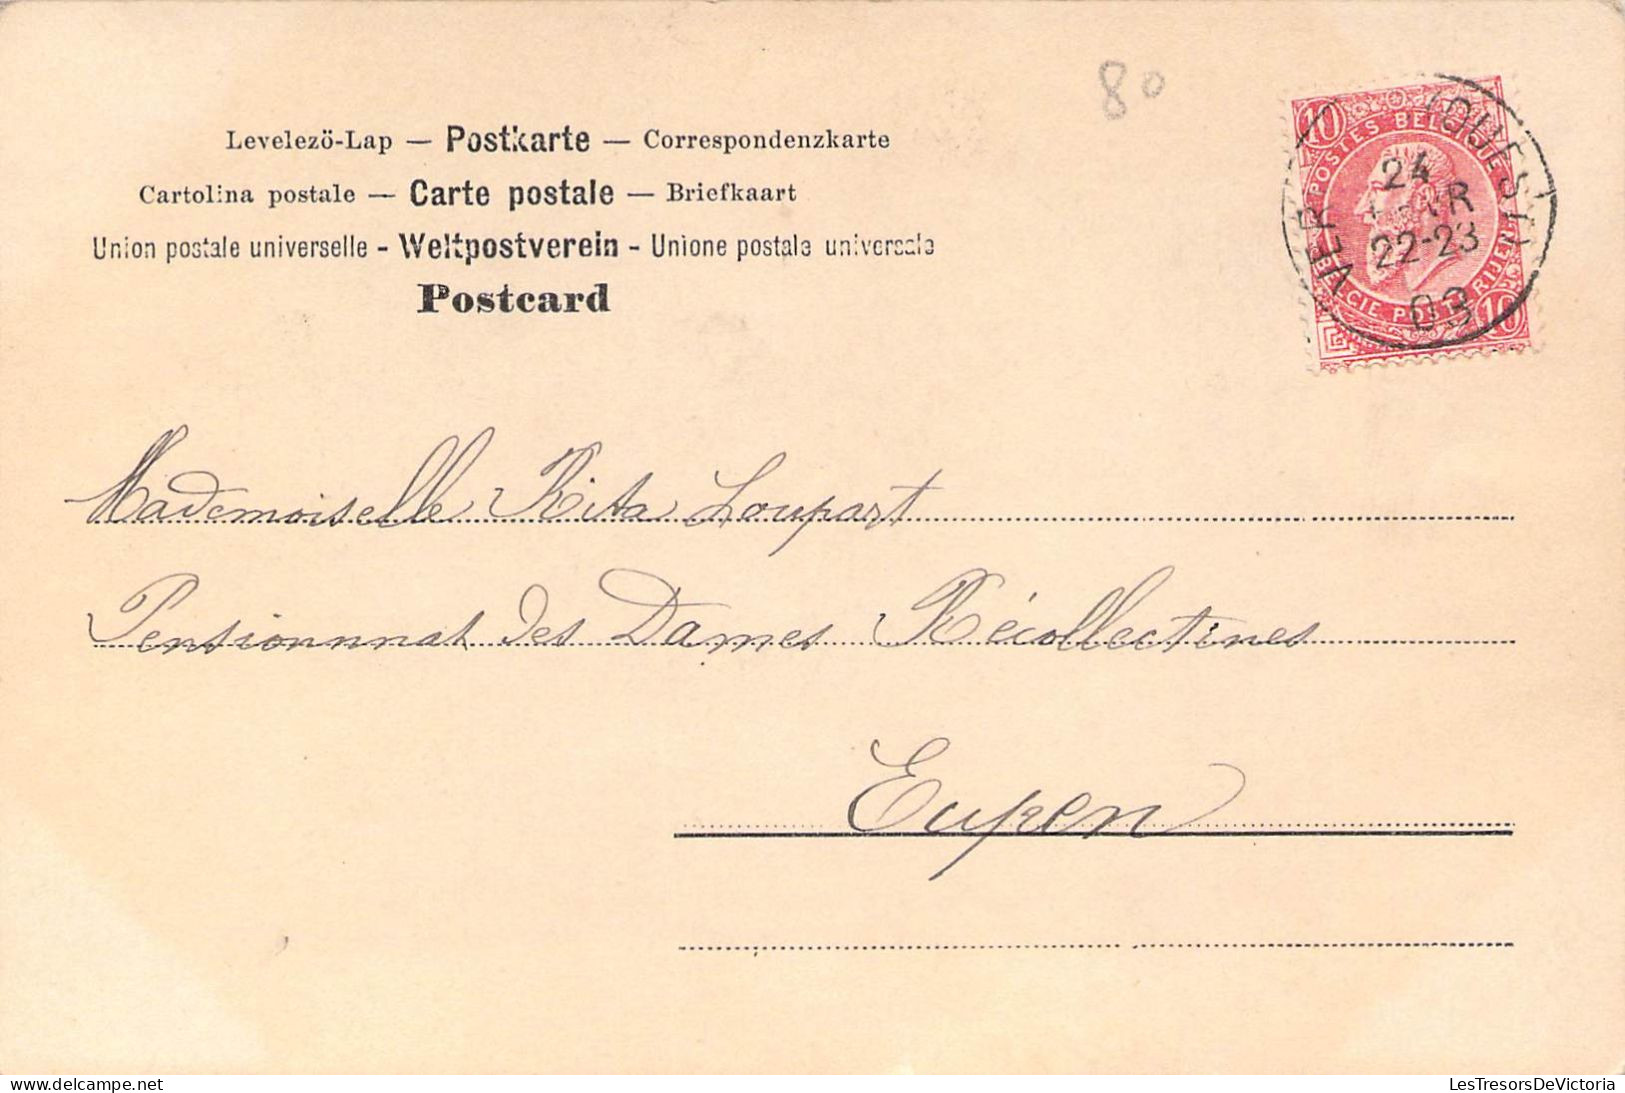 80
Levelezö-Lap — Postkarte — Correspondenzkarte
Cartolina postale — Carte postale — Briefkaart
Union postale universelle - Weltpostverein - Unione postale universale
Postcard
10 POSTES BELGIQUE
BELGIE POSTERIJEN 10
VER (OUEST)
24
22-23
03
Mademoiselle Rita Loupart
Pensionnnat des Dames Récollectines
Eupen
www.delcampe.net
LesTresorsDeVictoria